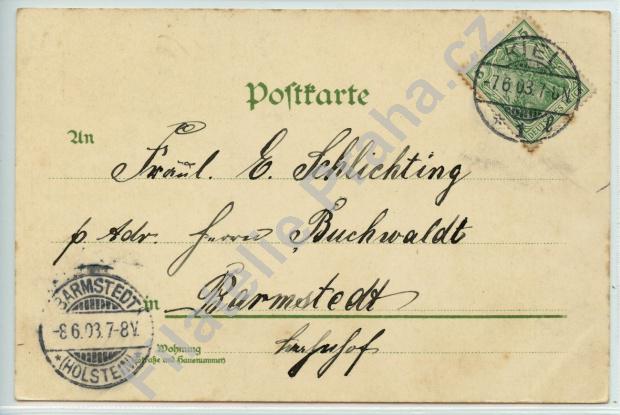 5
KIEL
-7.6.03.7-8V.
* 1 e
Postkarte
An
Fräul. E. Schlichting
p Adr. Herrn Buchwaldt
in Barmstedt
Bahnhof
Wohnung
(Straße und Hausnummer)
BARMSTEDT
-8.6.03.7-8V.
*(HOLSTEIN)*
Filatelie-Praha.cz